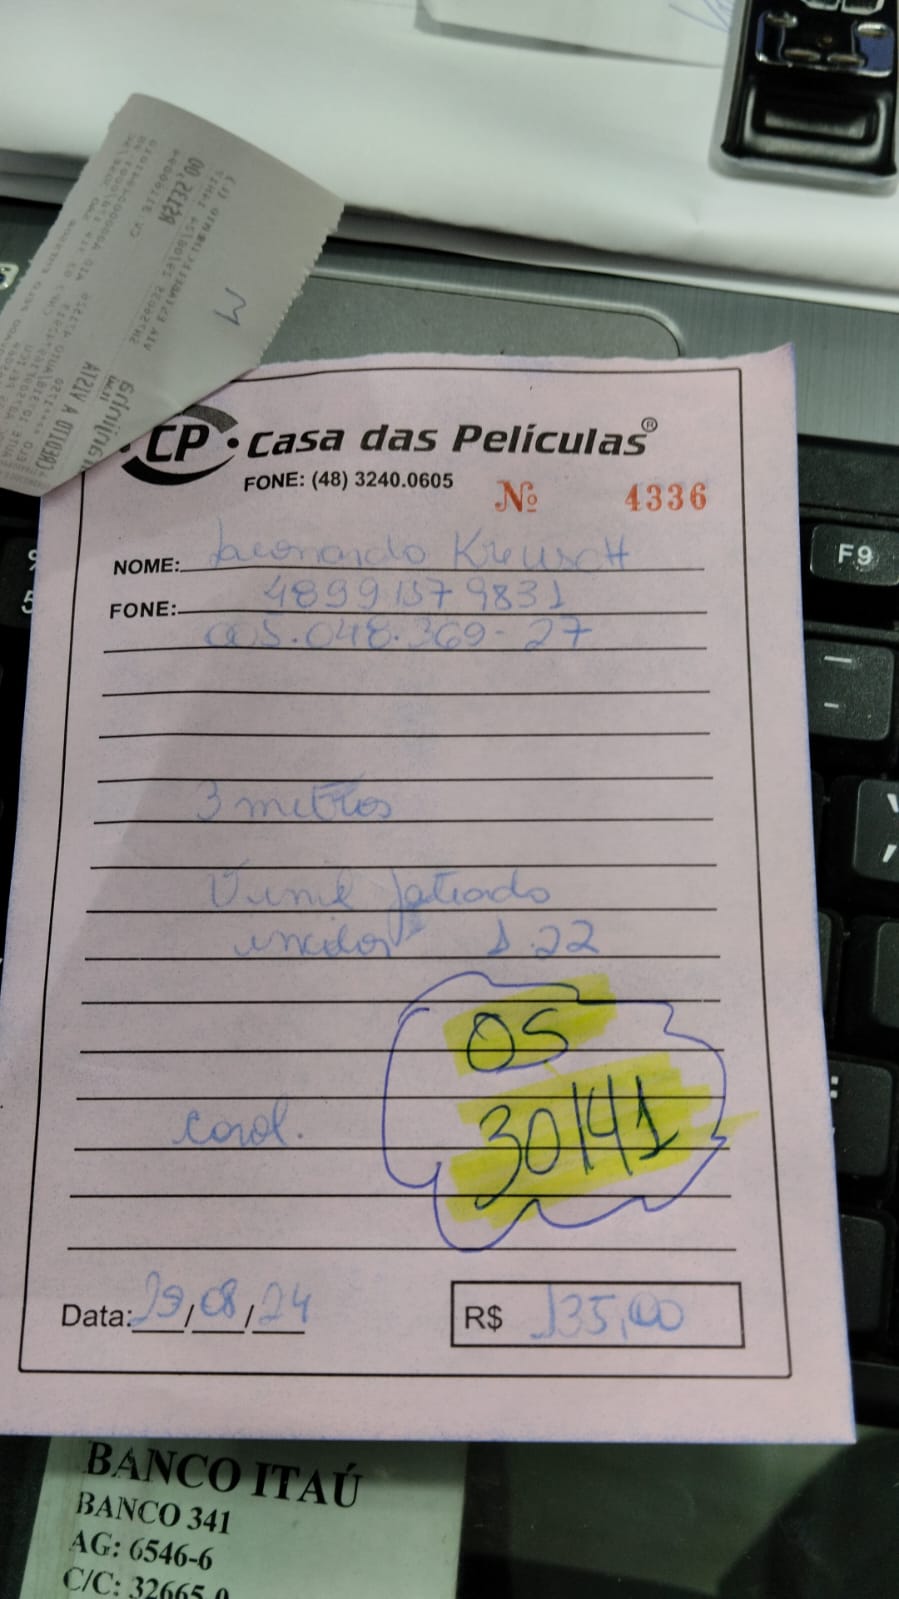 CP
Casa das Películas®
FONE: (48) 3240.0605
Nº 4336
NOME: Leonardo Kreusch
FONE: 48991579831
005.048.369-27
3 metros
Vinil Jateado
incolor 1.22
OS
30141
carol.
Data: 29/08/24
R$ 135,00
CREDITO A VISTA
F9
BANCO ITAÚ
BANCO 341
AG: 6546-6
C/C: 32665-0